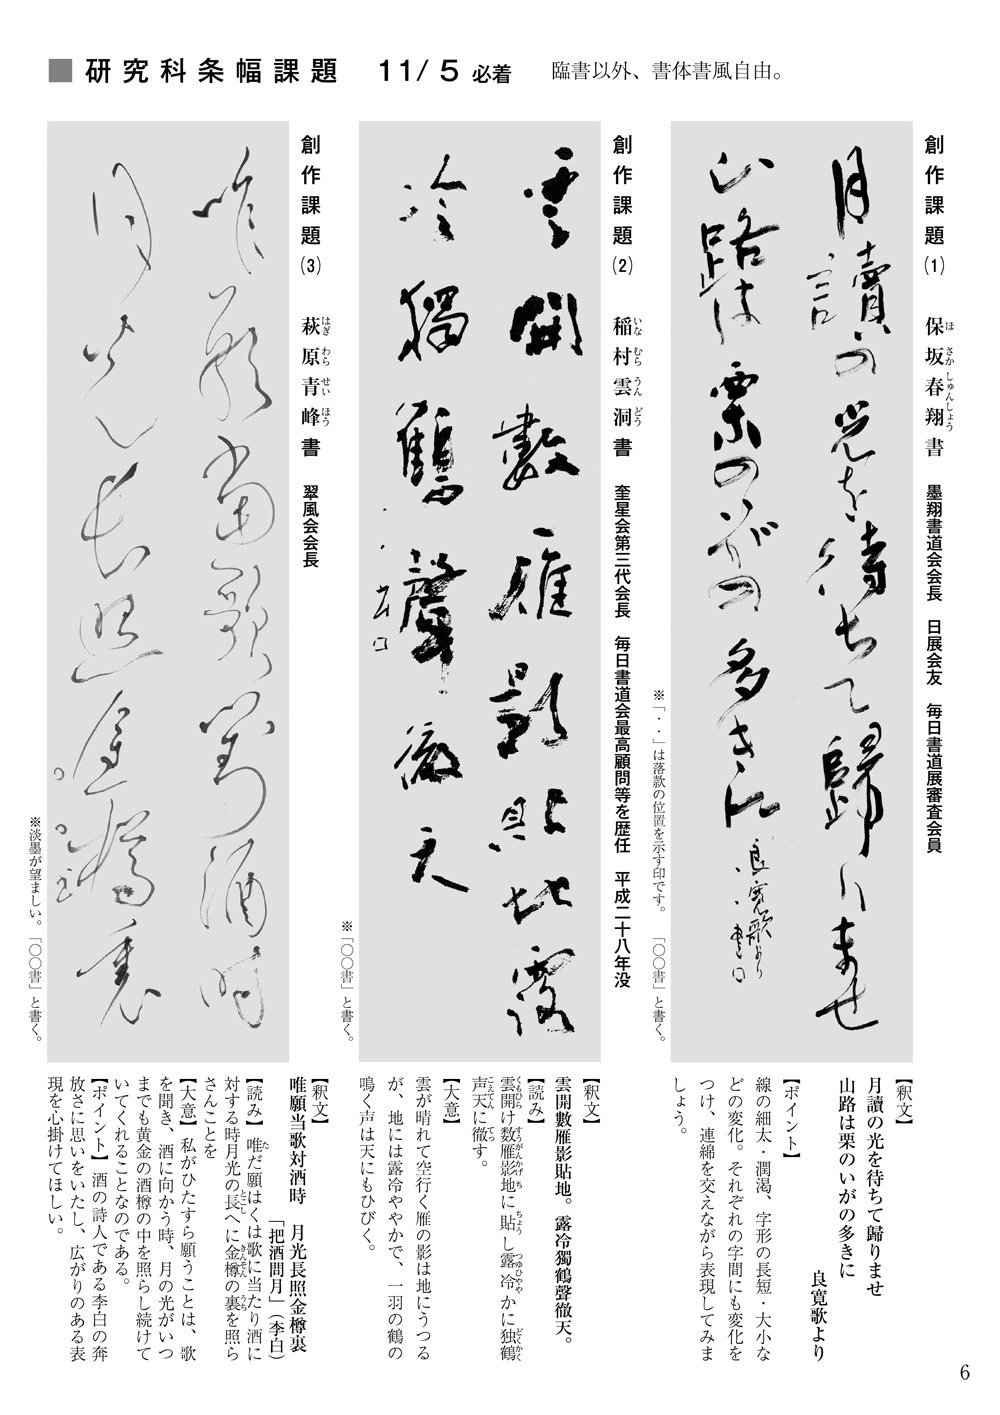 ■研究科条幅課題 11/5必着 臨書以外、書体書風自由。
創作課題(1) 保坂春翔書 墨翔書道会会長 日展会友 毎日書道展審査会員
ほ さか しゅんしょう
月讀の光を待ちて歸りませ
山路は栗のいがの多きに
良寛歌より
・・書○
※「・・」は落款の位置を示す印です。「〇〇書」と書く。
【釈文】
月讀の光を待ちて歸りませ
山路は栗のいがの多きに
良寛歌より
【ポイント】
線の細太・潤渇、字形の長短・大小な
どの変化。それぞれの字間にも変化を
つけ、連綿を交えながら表現してみま
しょう。
創作課題(2) 稲村雲洞書 奎星会第三代会長 毎日書道会最高顧問等を歴任 平成二十八年没
いな むら うん どう
雲開數雁影貼地露
冷獨鶴聲徹天
※「〇〇書」と書く。
【釈文】
雲開數雁影貼地。露冷獨鶴聲徹天。
【読み】
雲開け数雁影地に貼し露冷かに独鶴
くもひら すうがんかげ ち ちょう つゆひや どくかく
声天に徹す。
こえてん てっ
【大意】
雲が晴れて空行く雁の影は地にうつる
が、地には露冷ややかで、一羽の鶴の
鳴く声は天にもひびく。
創作課題(3) 萩原青峰書 翠風会会長
はぎ わら せい ほう
唯願當歌對酒時
月光長照金樽裏
※淡墨が望ましい。「〇〇書」と書く。
【釈文】
唯願当歌対酒時 月光長照金樽裏
「把酒問月」（李白）
【読み】唯だ願はくは歌に当たり酒に
た
対する時月光の長へに金樽の裏を照ら
とこし きんそん うち
さんことを
【大意】私がひたすら願うことは、歌
を聞き、酒に向かう時、月の光がいつ
までも黄金の酒樽の中を照らし続けて
いてくれることなのである。
【ポイント】酒の詩人である李白の奔
放さに思いをいたし、広がりのある表
現を心掛けてほしい。
6